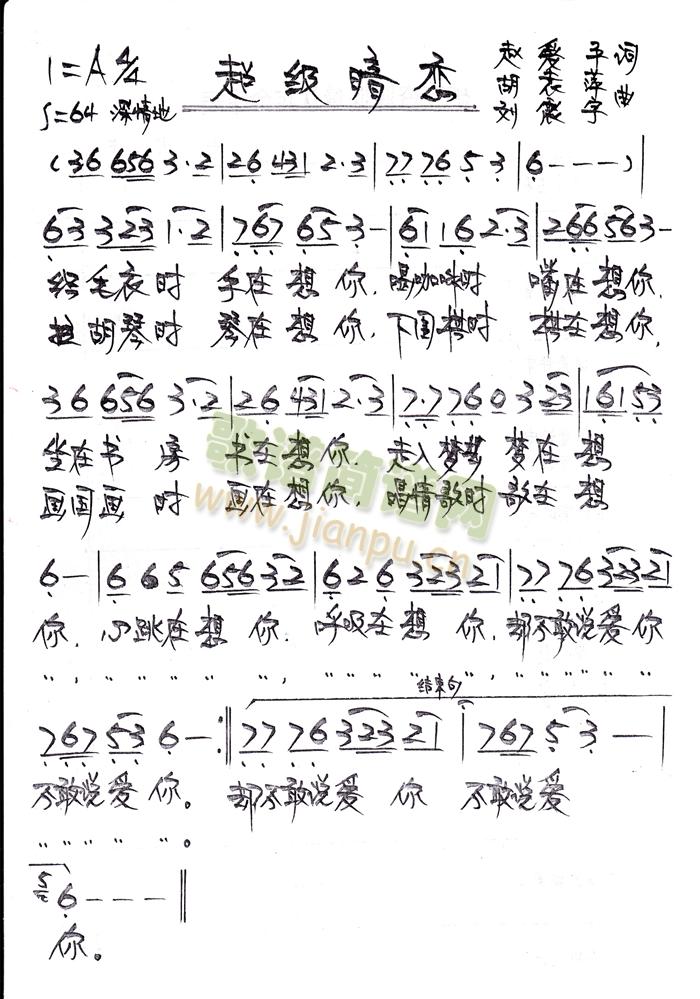 1=A 4/4 超级暗恋 赵爱平词
胡表萍
刘 宇曲
♩=64 深情地
(36 656 3·2|26 431 2·3|77 76 5 3|6---)
63 323 1·2|767 65 3-|61 16 2·3|266 563-
织毛衣时 手在想你,喝咖啡时 嘴在想你,
拉胡琴时 琴在想你,下围棋时 棋在想你,
36 656 3·2|26 431 2·3|7·7 76 0 3 23|161 53
坐在书房 书在想你,走入梦 梦在想
画国画时 画在想你,唱情歌时歌在想
歌谱简谱网
www.jianpu.cn
6-|6 65 656 32|6 2 6 323 21|77 76 323 21
你,心跳在想你,呼吸在想你,却不敢说爱你
〃,〃〃〃〃〃,〃〃〃〃〃,〃〃〃〃〃〃
结束句
767 53 6-:‖77 76 323 21|767 5 3--|
不敢说爱你。却不敢说爱你 不敢说爱
〃〃〃〃〃。
5 6---‖
你。